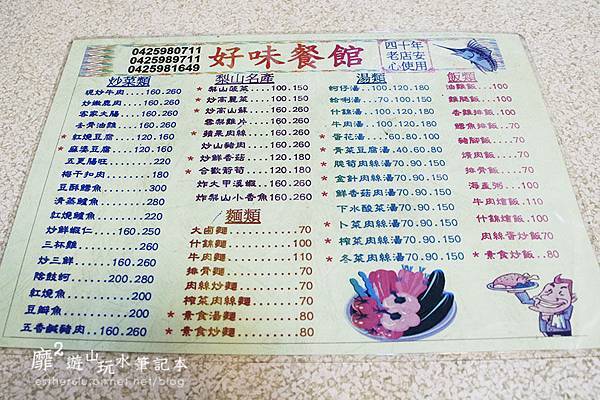 0425980711
0425989711
0425981649
好味餐館
四十年
老店安
心使用
炒菜類
現炒牛肉....160.260
炒嫩鹿肉....160.260
客家大腸....160.260
去骨油雞....160.260
*紅燒豆腐....120.160
*麻婆豆腐....120.160
五更腸旺............220
梅干扣肉............180
豆酥鱈魚............300
清蒸鱈魚............280
紅燒鱸魚............220
炒鮮蝦仁....160.250
三杯雞................260
炒三鮮........160.260
陰豉蚵........200.280
紅燒魚................200
豆瓣魚................200
五香鹹豬肉..160.260
梨山名產
*梨山菠菜....100.150
*炒高麗菜....100.150
*炒高山蘇....160.260
雪梨雞片....160.260
*蘋果肉絲....160.260
炒山豬肉....160.260
*炒鮮香菇....120.180
*合歡箭筍....120.180
炸大甲溪蝦..160.260
炸梨山小香魚160.260
麵類
大滷麵............70
什錦麵............100
牛肉麵............110
排骨麵............70
肉絲炒麵........70
榨菜肉絲麵....70
*素食湯麵........80
*素食炒麵........80
湯類
蚵仔湯..100.120.180
蛤蜊湯..70.100.150
什錦湯..100.120.180
牛肉湯..100.120.180
*蛋花湯....60.80.100
*青菜豆腐湯.40.60.80
*脆筍肉絲湯70.90.150
*金針肉絲湯70.90.150
*鮮香菇肉湯70.90.150
下水酸菜湯70.90.150
*卜菜肉絲湯70.90.150
*榨菜肉絲湯70.90.150
*冬菜肉絲湯70.90.150
飯類
油雞飯..100
雞腿飯..100
香雞排飯.100
鱈魚排飯.100
豬腳飯..100
燒肉飯..100
排骨飯..100
海產粥..100
牛肉燴飯.100
什錦燴飯.100
肉絲蛋炒飯70
*素食炒飯..80
靡²遊山玩水筆記本
estherclu.pixnet.net/blog